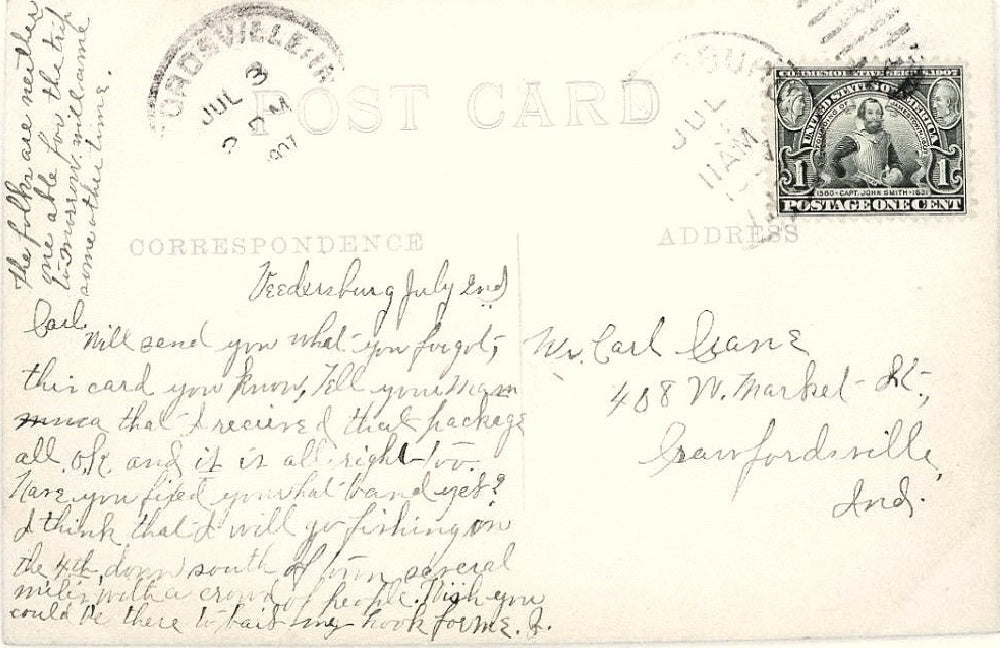 The folks are neither
one able for the trip
to-morrow. will come
some other time.
CRAWFORDSVILLE IND.
JUL 3
PM
1907
POST CARD
JUL
11 AM
COMMEMORATIVE SERIES 1907
UNITED STATES OF AMERICA
FOUNDING OF JAMESTOWN
1
1580 · CAPT. JOHN SMITH · 1631
1
POSTAGE ONE CENT
CORRESPONDENCE
ADDRESS
Veedersburg July 2nd
Carl
Will send you what you forgot,
this card you know, Tell your Mam
mma that I recieved that package
all O.K. and it is all right too.
Have you fixed your hat band yet?
I think that I will go fishing on
the 4th, down south of town several
miles with a crowd of people. Wish you
could be there to bait my hook for me. J.
Mr. Carl Crane
408 W. Market St.,
Crawfordsville,
Ind.